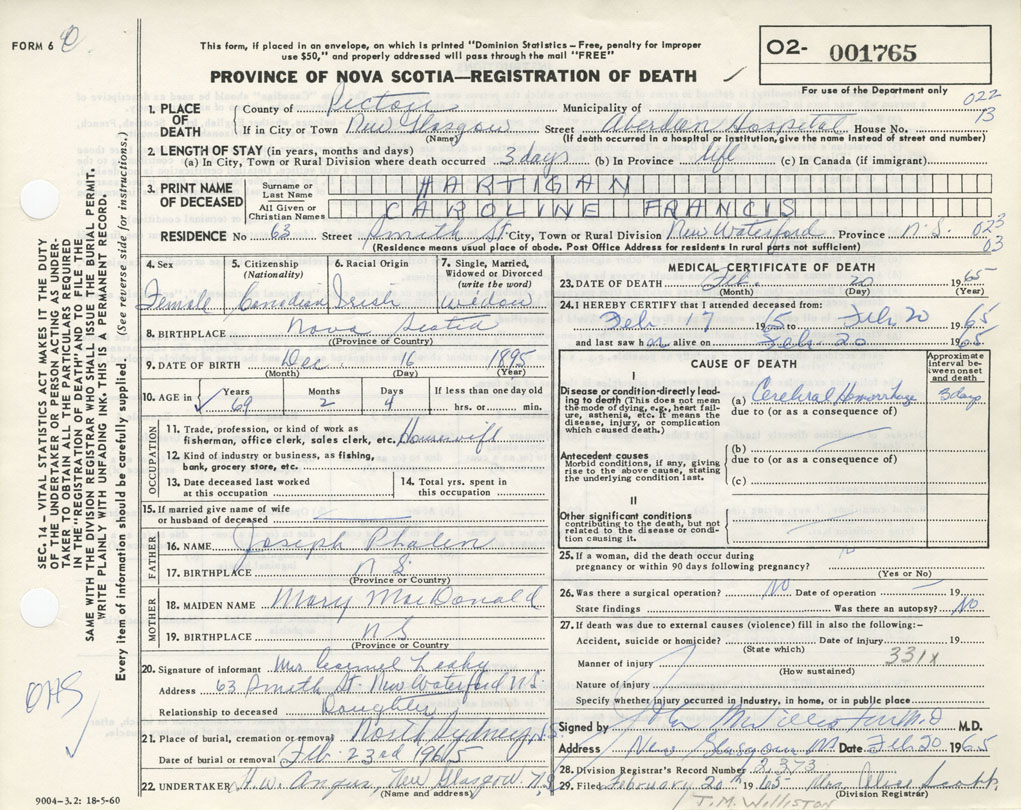 FORM 6
This form, if placed in an envelope, on which is printed "Dominion Statistics – Free, penalty for improper
use $50," and properly addressed will pass through the mail "FREE"
PROVINCE OF NOVA SCOTIA—REGISTRATION OF DEATH
O2- 001765
For use of the Department only
022
13
1. PLACE OF DEATH
County of Pictou Municipality of
If in City or Town New Glasgow Street Aberdeen Hospital House No.
(Name) (If death occurred in hospital or institution, give the name instead of street and number)
2. LENGTH OF STAY (in years, months and days)
(a) In City, Town or Rural Division where death occurred 3 days (b) In Province life (c) In Canada (if immigrant)
3. PRINT NAME OF DECEASED
Surname or Last Name HARTIGAN
All Given or Christian Names CAROLINE FRANCIS
RESIDENCE No 63 Street Smith St. City, Town or Rural Division New Waterford Province N.S. 023
03
(Residence means usual place of abode. Post Office Address for residents in rural parts not sufficient)
4. Sex Female
5. Citizenship (Nationality) Canadian
6. Racial Origin Irish
7. Single, Married, Widowed or Divorced (write the word) widow
8. BIRTHPLACE Nova Scotia
(Province or Country)
9. DATE OF BIRTH Dec. 16 1895
(Month) (Day) (Year)
10. AGE in Years 69 Months 2 Days 4 If less than one day old hrs. or min.
OCCUPATION
11. Trade, profession, or kind of work as
fisherman, office clerk, sales clerk, etc. Housewife
12. Kind of industry or business, as fishing,
bank, grocery store, etc.
13. Date deceased last worked
at this occupation
14. Total yrs. spent in
this occupation
15. If married give name of wife
or husband of deceased
FATHER
16. NAME Joseph Phalen
17. BIRTHPLACE N.S.
(Province or Country)
MOTHER
18. MAIDEN NAME Mary MacDonald
19. BIRTHPLACE N S
(Province or Country)
20. Signature of informant Mrs Leahy
Address 63 Smith St. New Waterford N.S.
Relationship to deceased Daughter
21. Place of burial, cremation or removal North Sydney, N.S.
Date of burial or removal Feb. 23rd 1965
22. UNDERTAKER H.W. Angus, New Glasgow. N.S
(Name and address)
MEDICAL CERTIFICATE OF DEATH
23. DATE OF DEATH Feb. 20 1965
(Month) (Day) (Year)
24. I HEREBY CERTIFY that I attended deceased from:
Feb 17 1965 to Feb 20 1965
and last saw her alive on Feb. 20 1965.
CAUSE OF DEATH
Approximate interval between onset and death
I
Disease or condition directly leading to death (This does not mean the mode of dying, e.g., heart failure, asthenia, etc. It means the disease, injury, or complication which caused death.)
(a) Cerebral Hemorrhage 3 days
due to (or as a consequence of)
Antecedent causes
Morbid conditions, if any, giving rise to the above cause, stating the underlying condition last.
(b)
due to (or as a consequence of)
(c)
II
Other significant conditions
contributing to the death, but not related to the disease or condition causing it.
25. If a woman, did the death occur during
pregnancy or within 90 days following pregnancy?
(Yes or No)
26. Was there a surgical operation? No Date of operation 19
State findings Was there an autopsy? No
27. If death was due to external causes (violence) fill in also the following:-
Accident, suicide or homicide? Date of injury 19
(State which)
Manner of injury 331X
(How sustained)
Nature of injury
Specify whether injury occurred in industry, in home, or in public place
Signed by M.D. M.D.
Address New Glasgow NS Date Feb 20 1965
28. Division Registrar's Record Number 2373
29. Filed February 20th 1965 Mrs. Alice
(Division Registrar)
T.M. Williston
SEC. 14 – VITAL STATISTICS ACT MAKES IT THE DUTY
OF THE UNDERTAKER OR PERSON ACTING AS UNDERTAKER TO OBTAIN ALL THE PARTICULARS REQUIRED
IN THE "REGISTRATION OF DEATH" AND TO FILE THE
SAME WITH THE DIVISION REGISTRAR WHO SHALL ISSUE THE BURIAL PERMIT.
WRITE PLAINLY WITH UNFADING INK. THIS IS A PERMANENT RECORD.
Every item of information should be carefully supplied. (See reverse side for instructions.)
OHS
9004-3.2: 18-5-60